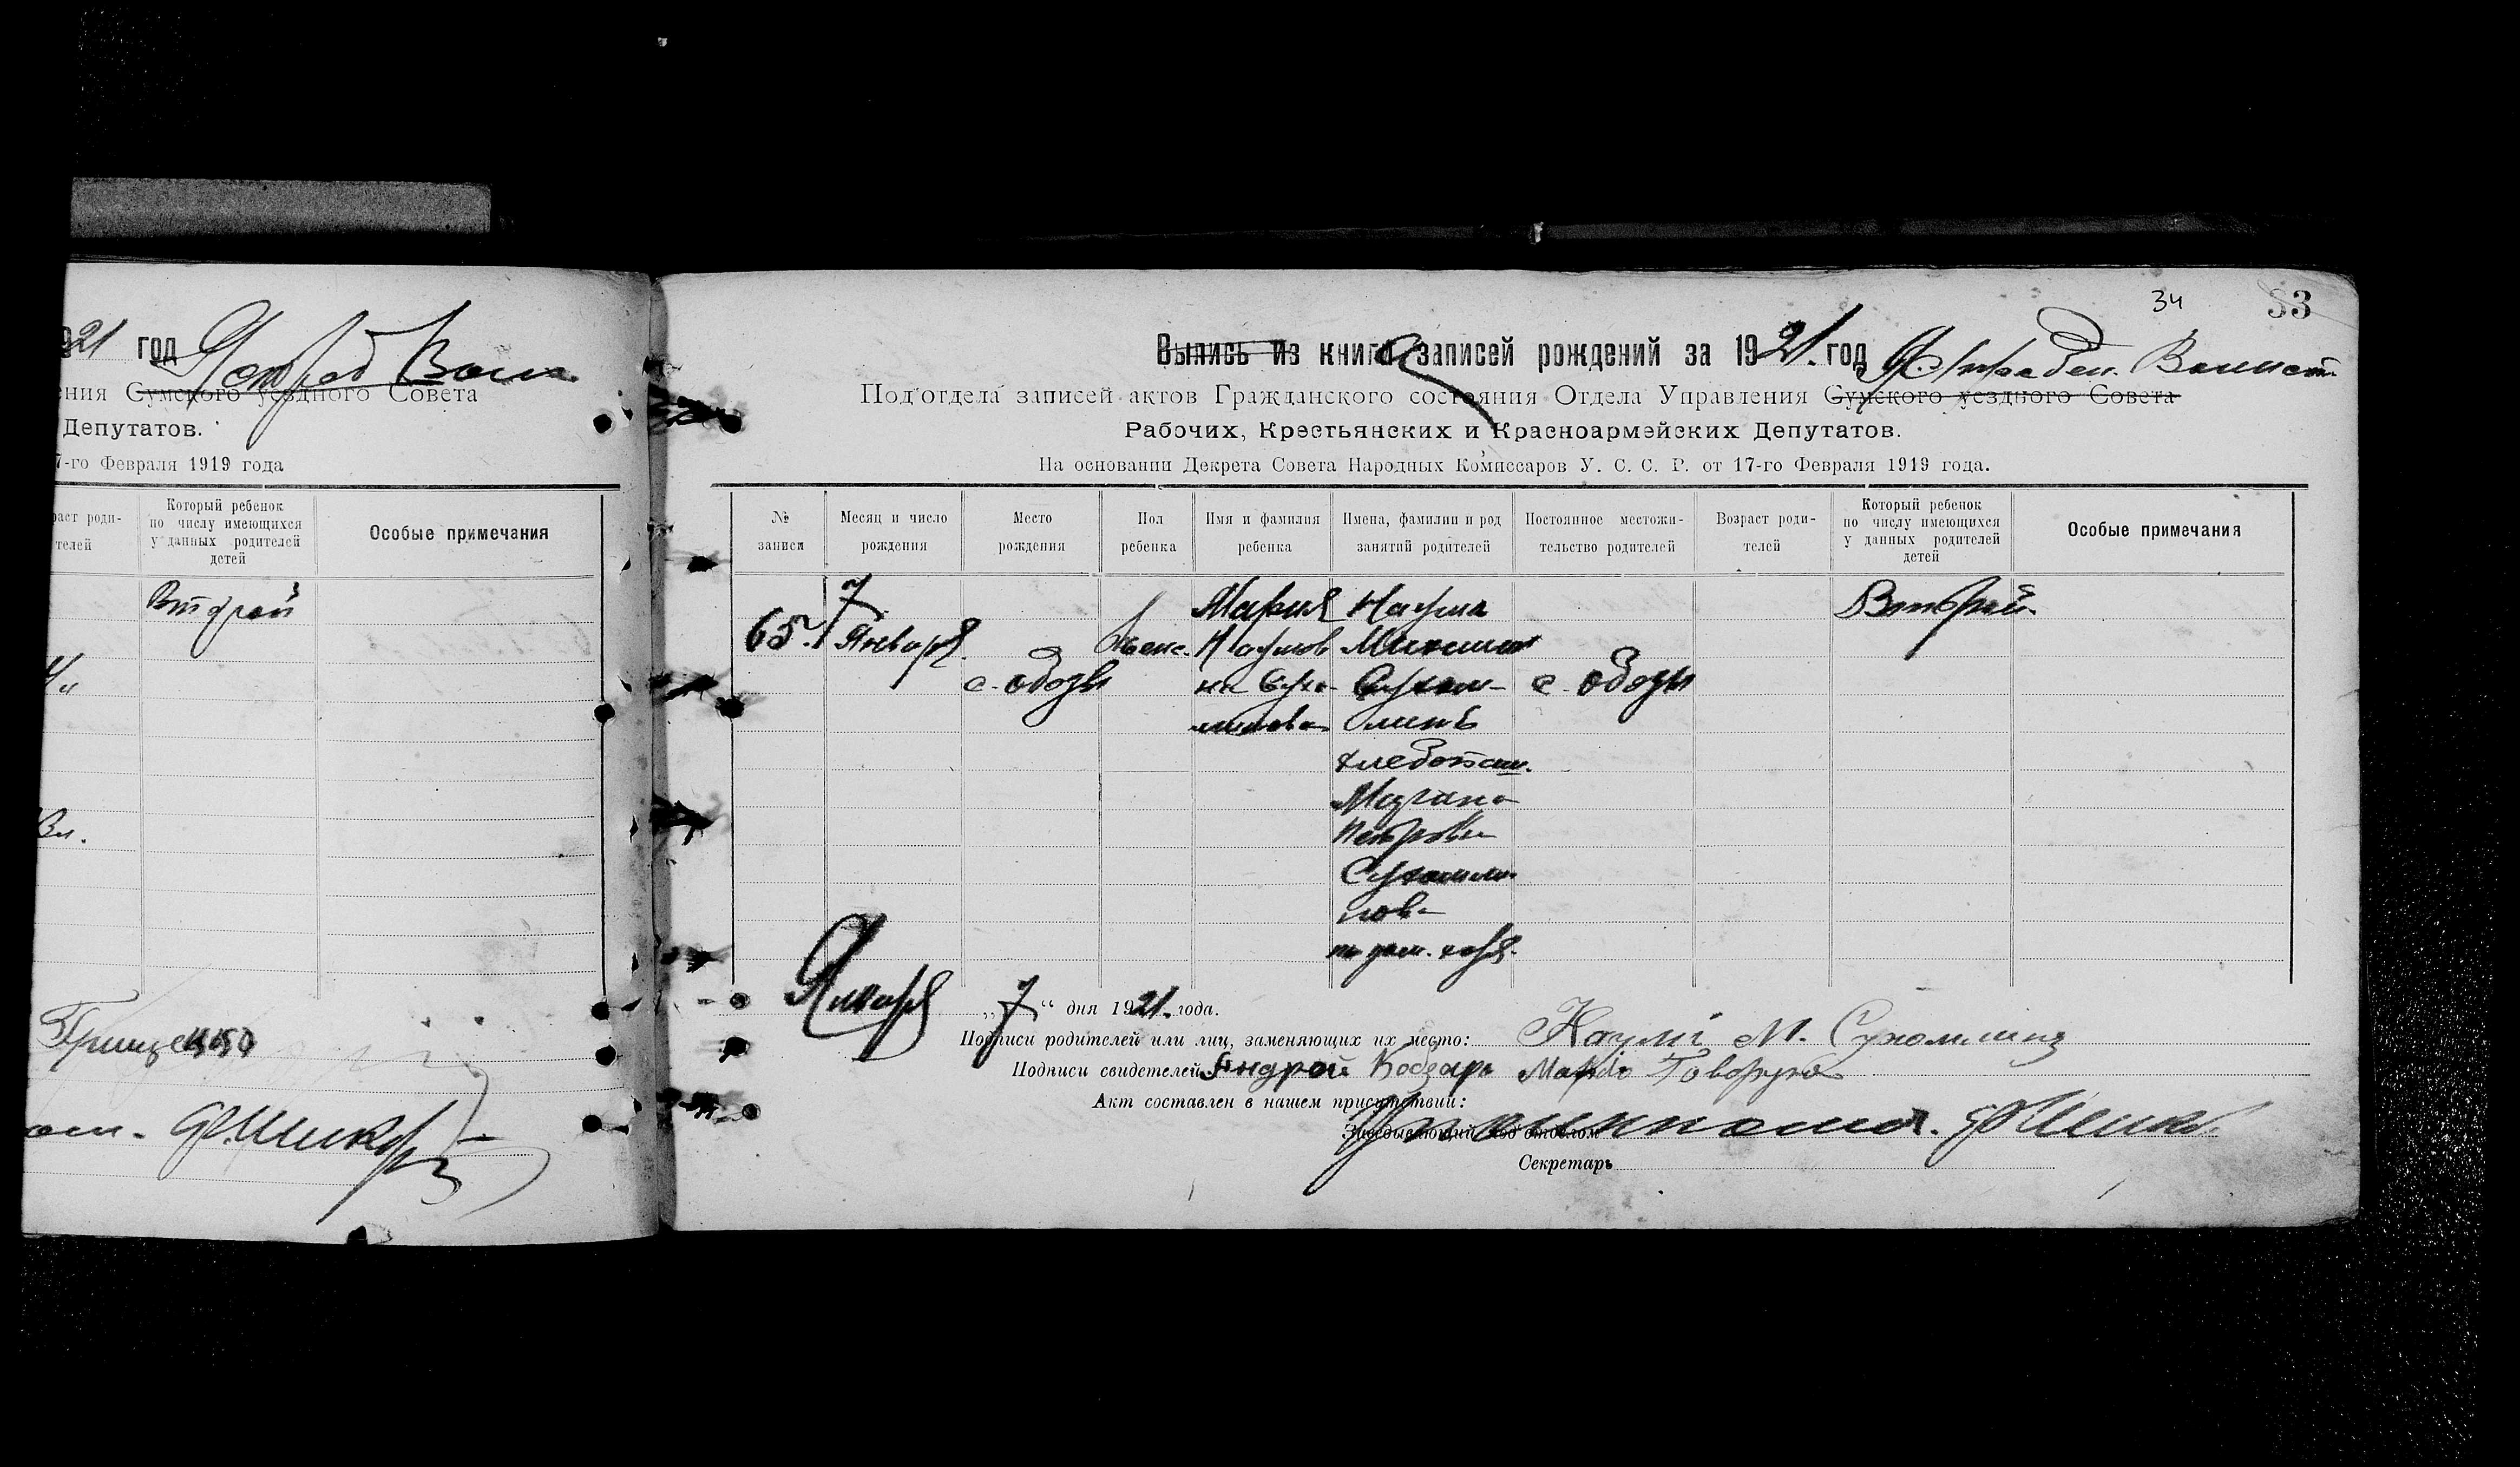 21 год
ения Сумского уездного Совета
Депутатов.
7-го Февраля 1919 года
раст роди-
телей
Который ребенок
по числу имеющихся
у данных родителей
детей
Особые примечания
Второй
34
33
Выпись из книга записей рождений за 1921. год
Подотдела записей актов Гражданского состояния Отдела Управления Сумского уездного Совета
Рабочих, Крестьянских и Красноармейских Депутатов.
На основании Декрета Совета Народных Комиссаров У. С. С. Р. от 17-го Февраля 1919 года.
№
записи
Месяц и число
рождения
Место
рождения
Пол
ребенка
Имя и фамилия
ребенка
Имена, фамилии и род
занятий родителей
Постоянное местожи-
тельство родителей
Возраст роди-
телей
Который ребенок
по числу имеющихся
у данных родителей
детей
Особые примечания
65.
7
Января
с. Ободы
женс.
Мария
Наумов
на Сухо-
минова
Наума
Сухом-
линъ
хлебопаш.
Петровна
Сухомли
нова
дом. хозя.
с. Ободы
Второй
Января „7“ дня 1921. года.
Подписи родителей или лиц, заменяющих их место: Наумъ М. Сухомлинъ
Подписи свидетелей Андрей Кобзарь
Акт составлен в нашем присутствии:
Заведывающий под'отделом
Секретарь